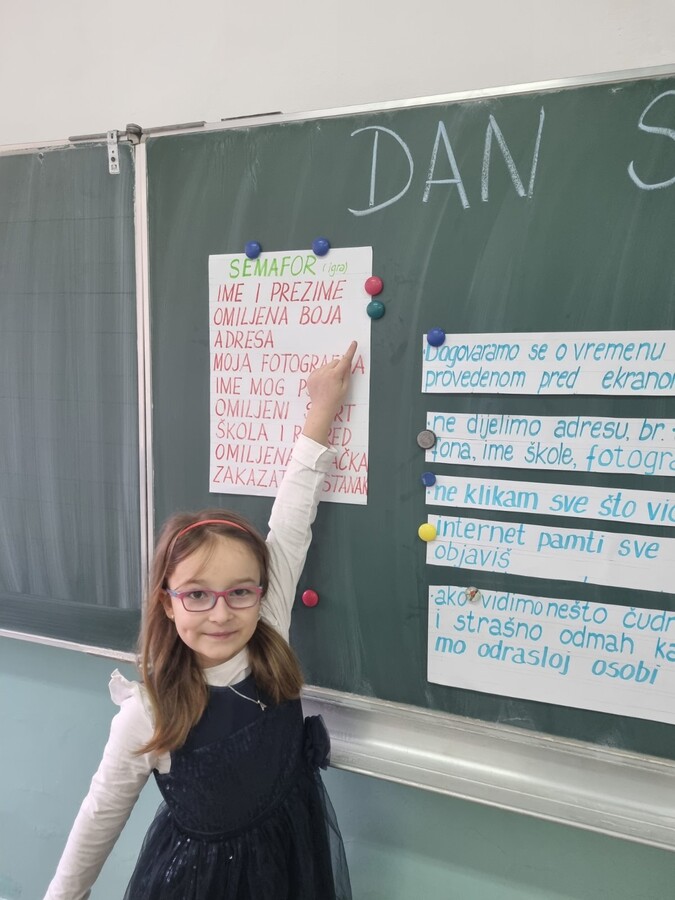 DAN
SEMAFOR (igra)
IME I PREZIME
OMILJENA BOJA
ADRESA
MOJA
IME MOG
OMILJENI
ŠKOLA I
OMILJENA
Dogovaramo se o vremenu
provedenom pred
ne dijelimo adresu, br.
ime škole,
ne klikam sve što
internet pamti sve
objaviš
ako vidimo nešto
i strašno odmah
mo odrasloj osobi